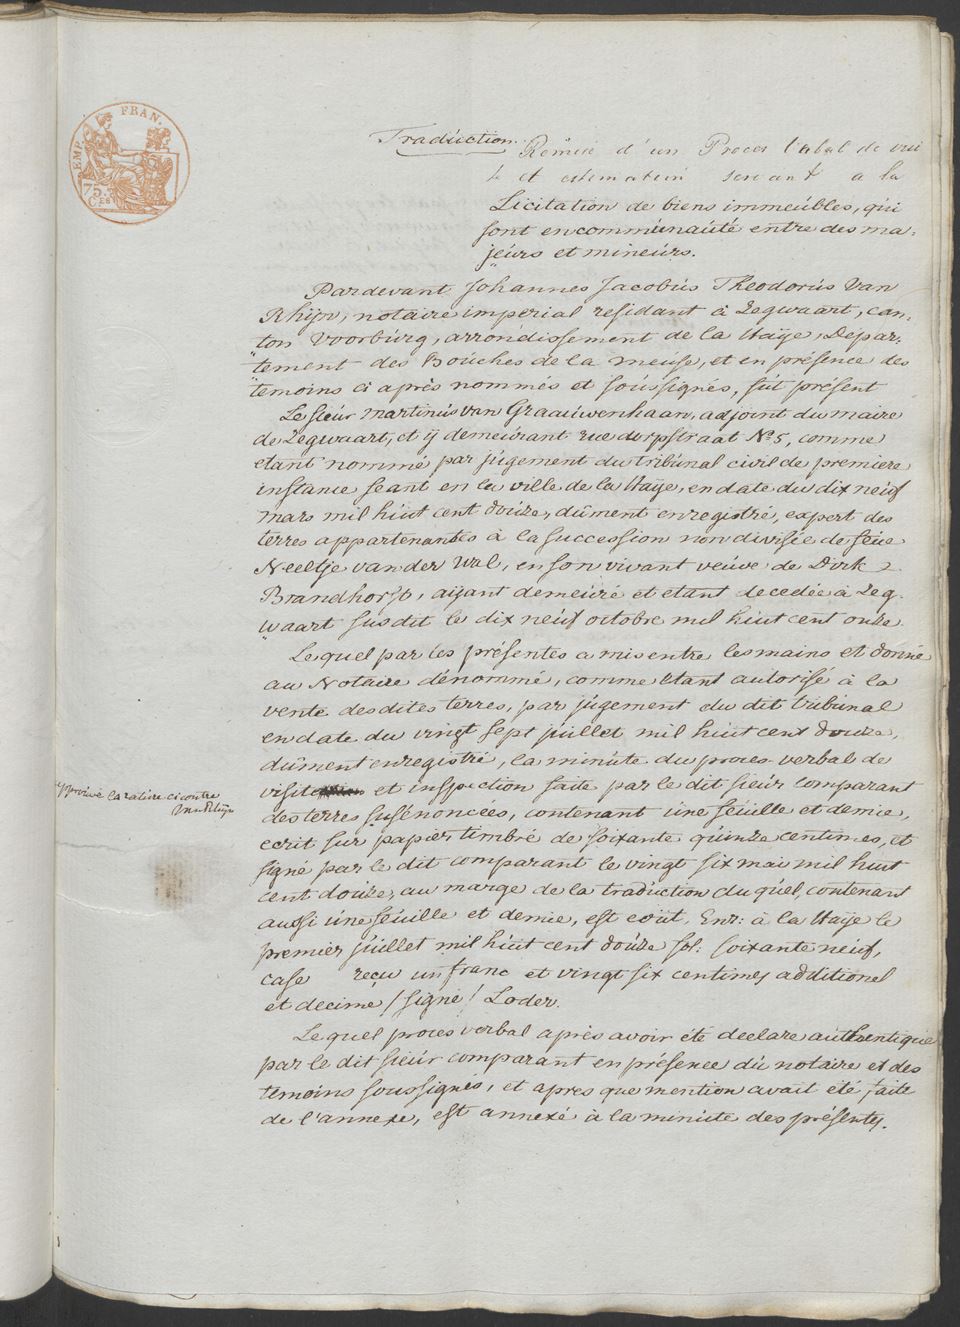 EMP. FRAN.
75. Ces
Traduction.
Remise d'un Proces verbal de visi
te et estimation servant a la
Licitation de biens immeubles, qui
sont en communauté entre des ma-
jeurs et mineurs.
Pardevant Johannes Jacobus Theodorus Van
Rhijn, notaire imperial residant à Zegwaart, can-
ton Voorburg, arrondissement de la Haÿe, Depar-
tement des Bouches de la meuse, et en présence des
temoins ci après nommés et soussignés, fut présent
Le sieur Martinus van Graauwenhaan, adjoint du maire
de Zegwaart, et ÿ demeurant rue dorpstraat No. 5, comme
etant nommé par jugement du tribunal civil de premiere
instance seant en la ville de la Haÿe, en date du dix neuf
mars mil huit cent douze, dûment enregistré, expert des
terres appartenantes à la succession non divisée de feue
Neeltje van der Wal, en son vivant veuve de Dirk
Brandhorst, aÿant demeuré et etant decedée à Zeg-
waart susdit le dix neuf octobre mil huit cent onze.
Lequel par les présentes a mis entre les mains et donné
au Notaire dénommé, comme etant autorisé à la
vente desdites terres, par jugement du dit tribunal
en date du vingt sept juillet mil huit cent douze,
dûment enregistré, la minute du proces verbal de
visite et inspection faite par le dit sieur comparant
des terres susénoncées, contenant une feuille et demie,
ecrit sur papier timbré de soixante quinze centimes, et
signé par le dit comparant le vingt six mai mil huit
cent douze, au marge de la traduction du quel, contenant
aussi une feuille et demie, est ecrit, Enr: à la Haÿe le
premier juillet mil huit cent douze fol: soixante neuf,
case reçu un franc et vingt six centimes additionel
et decime / signé / Loder.
Lequel proces verbal après avoir été declaré authentique
par le dit sieur comparant en présence du notaire et des
temoins soussignés, et apres que mention avait été faite
de l'annexe, est annexé à la minute des présentes.
approuvé la rature ci contre
Van Rhijn